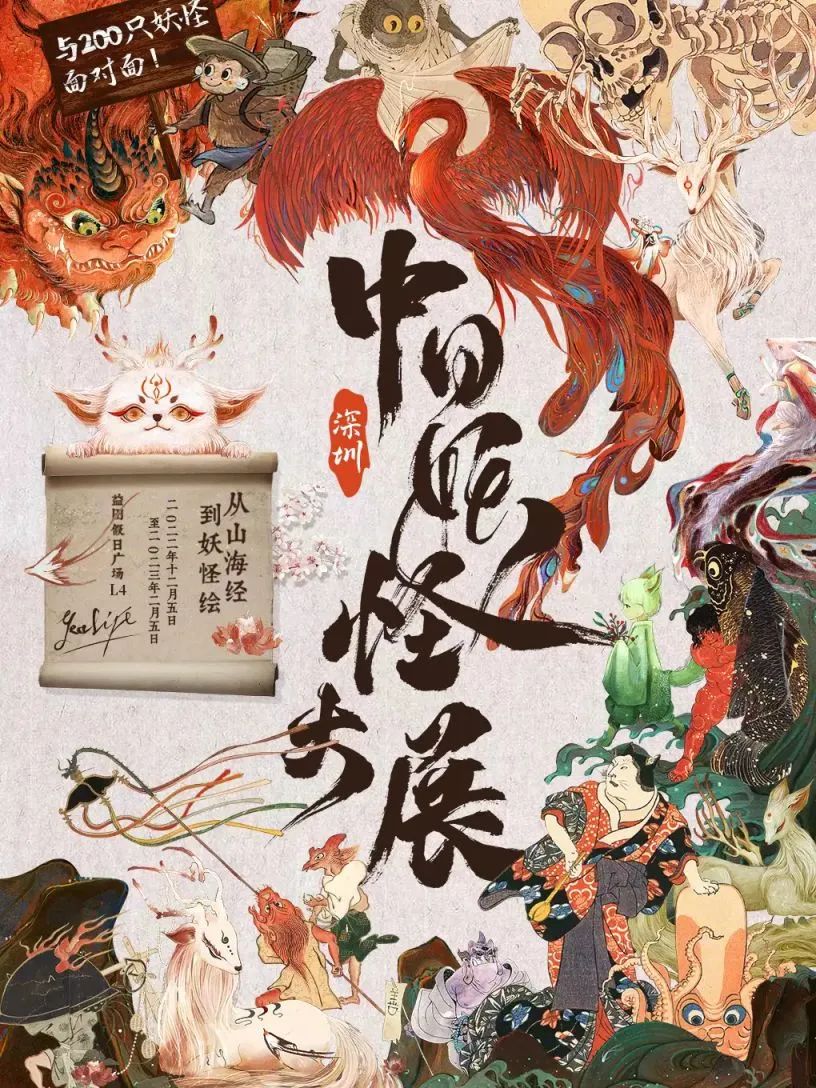 与200只妖怪
面对面！
中日妖怪大展
深圳
从山海经
到妖怪绘
二〇二二年十二月五日
至二〇二三年二月五日
益田假日广场 L4
YeaLife